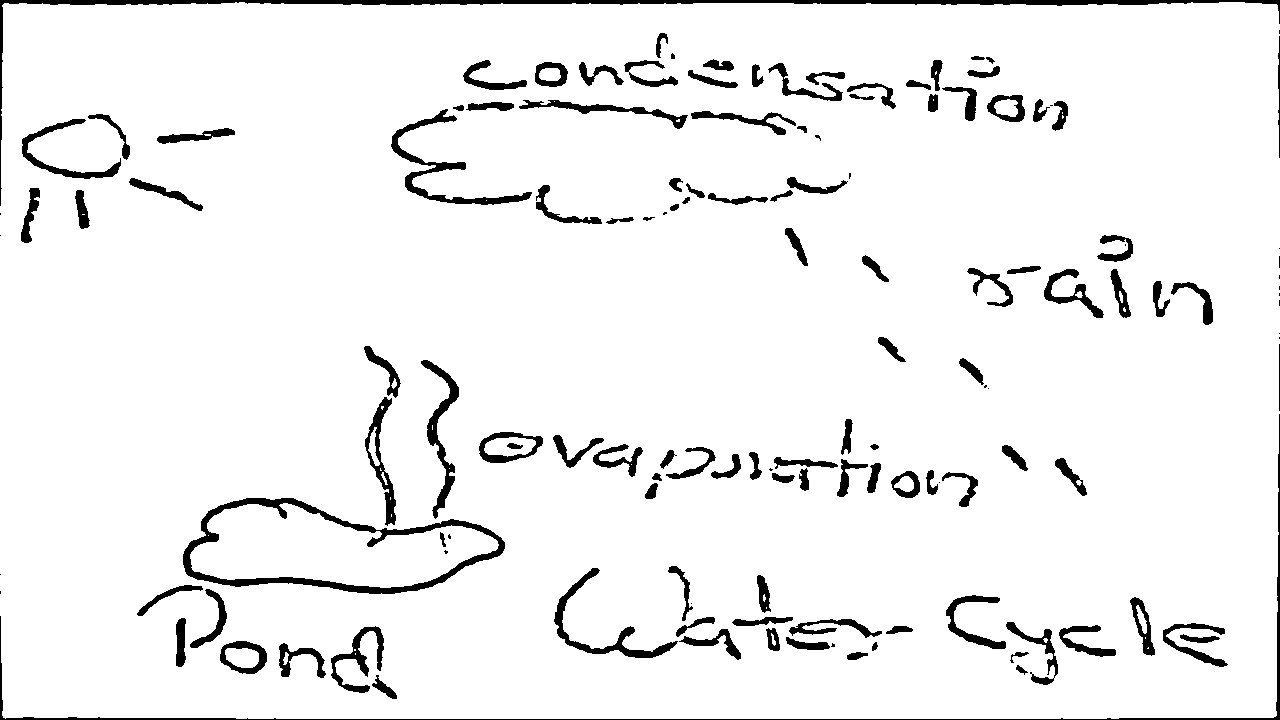 condensation
rain
evapration
Pond
Water Cycle